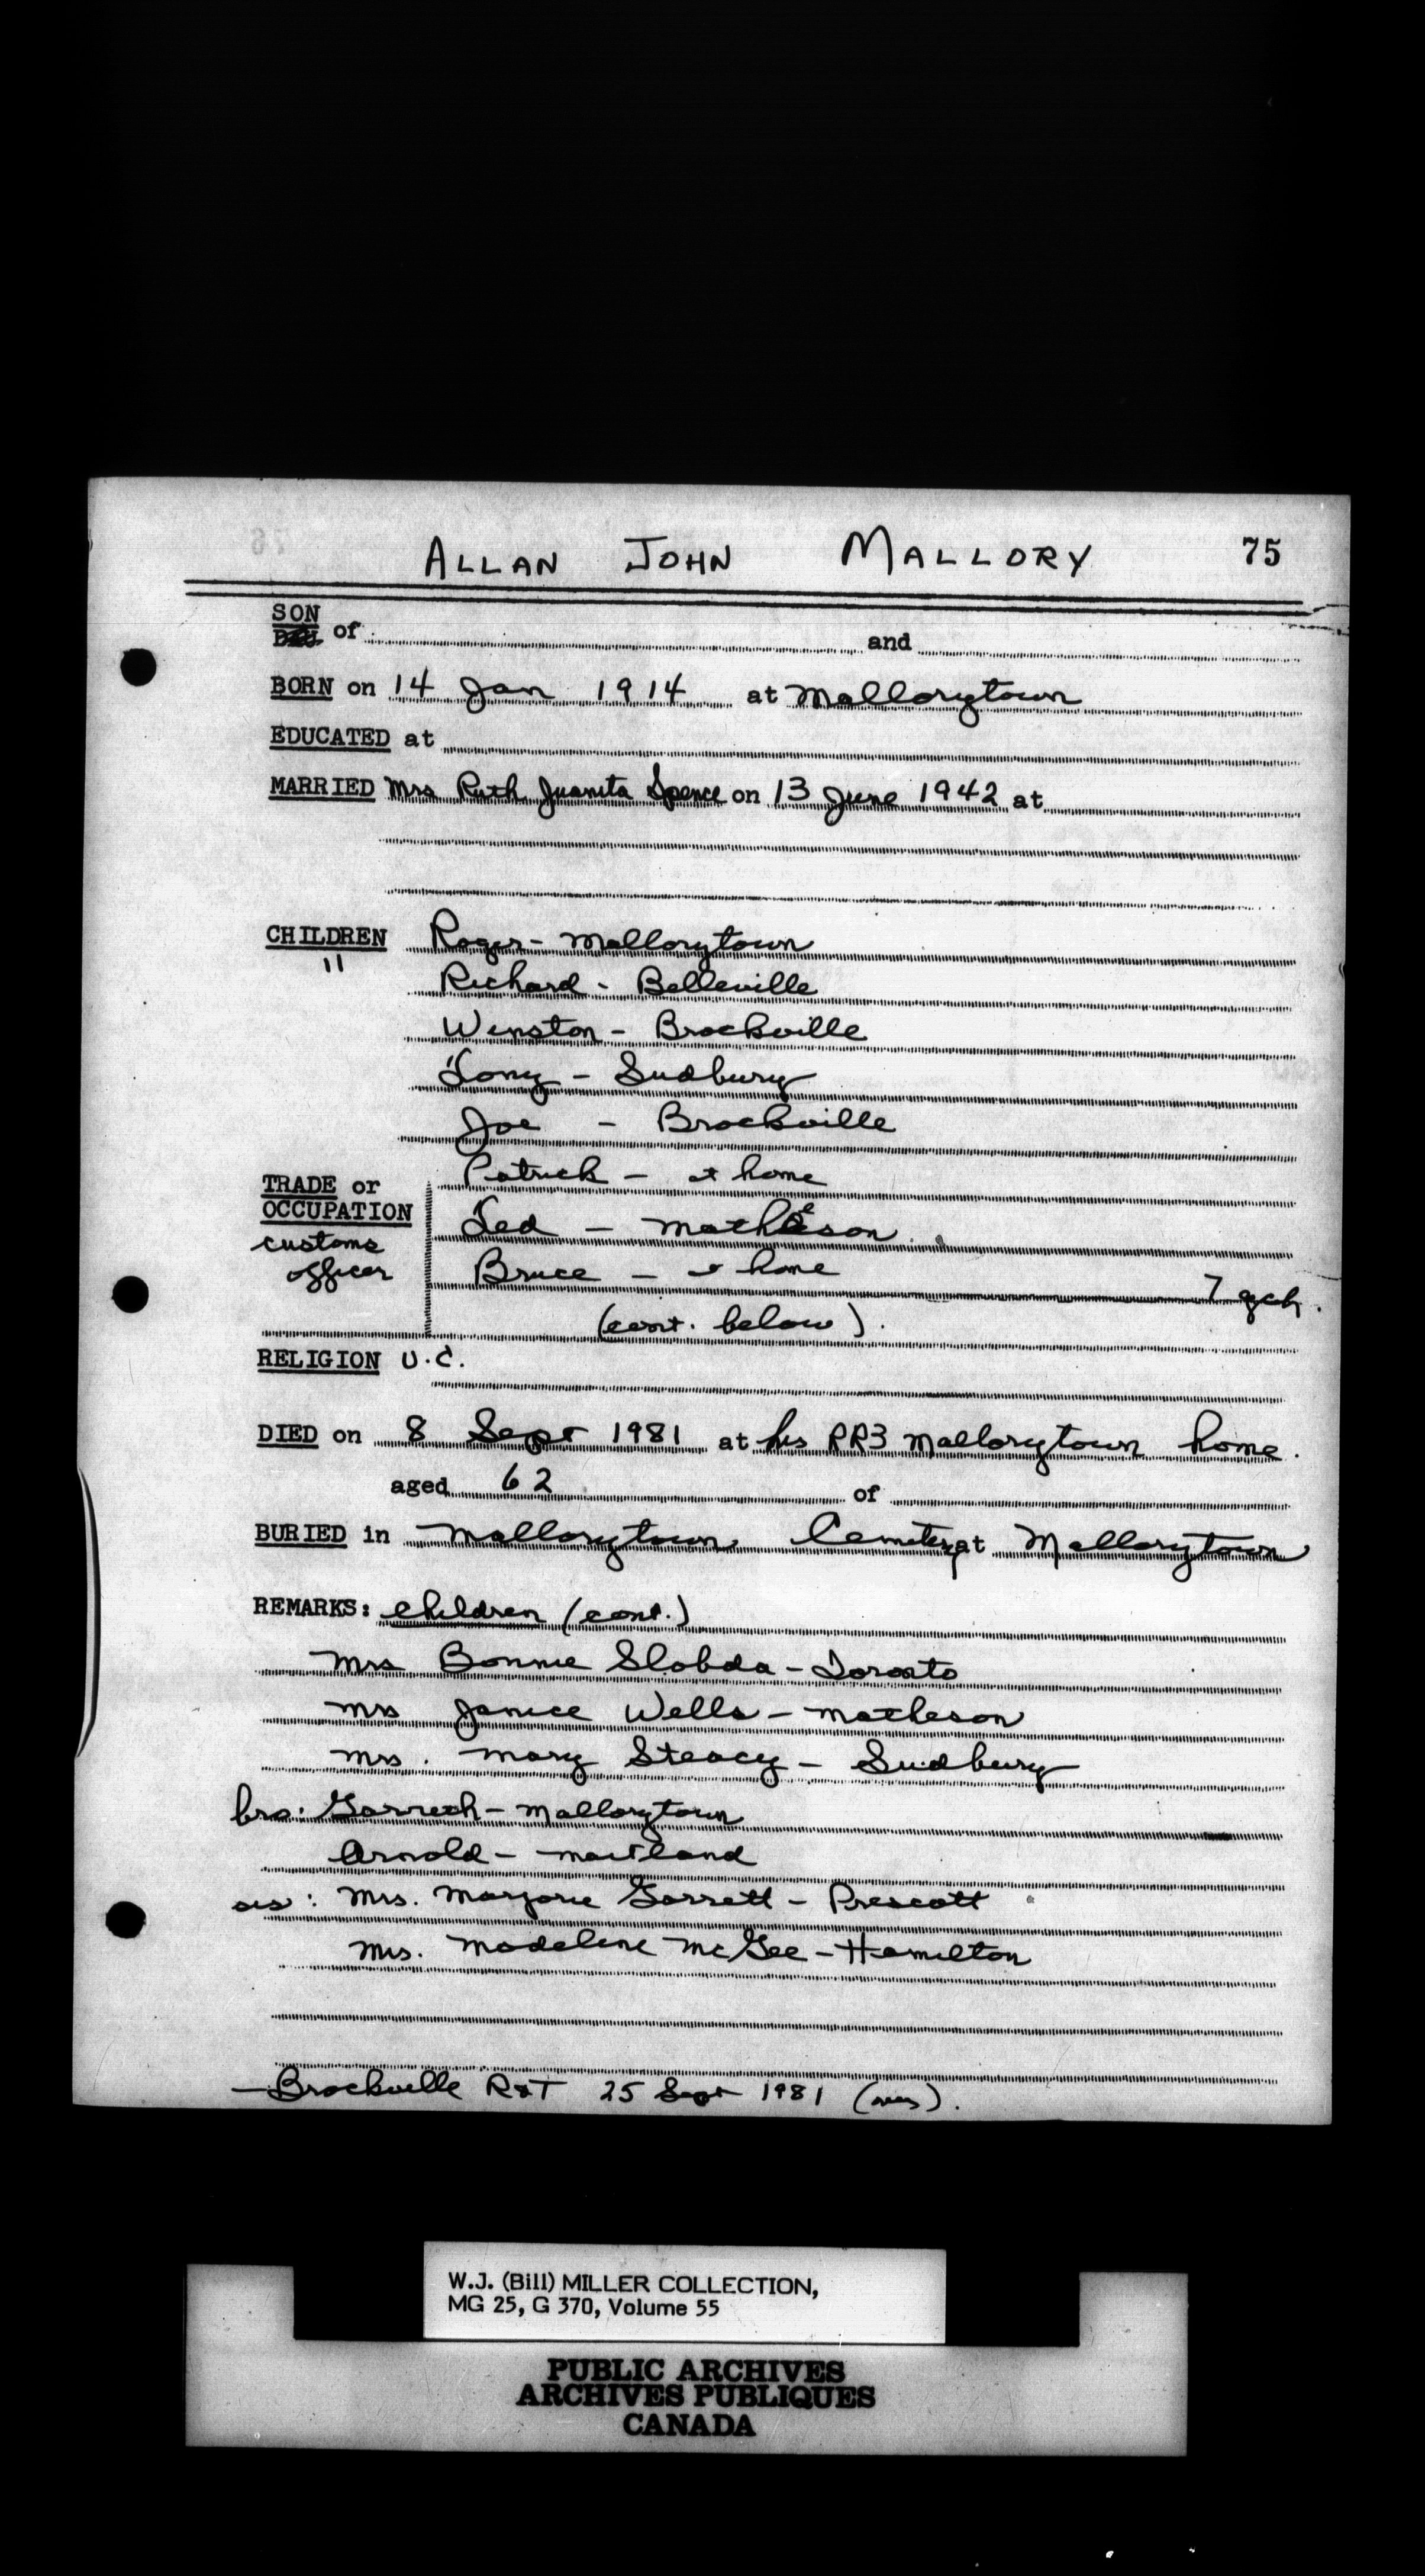 ALLAN JOHN MALLORY 75
SON
DAU of and
BORN on 14 Jan 1914 at Mallorytown
EDUCATED at
MARRIED Mrs Ruth Juanita Spence on 13 June 1942 at
CHILDREN Roger - Mallorytown
11
Richard - Belleville
Winston - Brockville
Tony - Sudbury
Joe - Brockville
Patrick - at home
TRADE or
OCCUPATION
customs
officer
Ted - Matheson
Bruce - at home
7 gch.
(cont. below).
RELIGION U.C.
DIED on 8 Sept 1981 at his RR3 Mallorytown home.
aged 62 of
BURIED in Mallorytown Cemetery at Mallorytown
REMARKS: children (cont.)
Mrs Bonnie Slobda - Toronto
Mrs Janice Wells - Matheson
Mrs. Mary Steacy - Sudbury
bro: Garreth - Mallorytown
Arnold - Maitland
sis: Mrs. Marjorie Garrett - Prescott
Mrs. Madeline McGee - Hamilton
- Brockville R&T 25 Sept 1981
W.J. (Bill) MILLER COLLECTION,
MG 25, G 370, Volume 55
PUBLIC ARCHIVES
ARCHIVES PUBLIQUES
CANADA